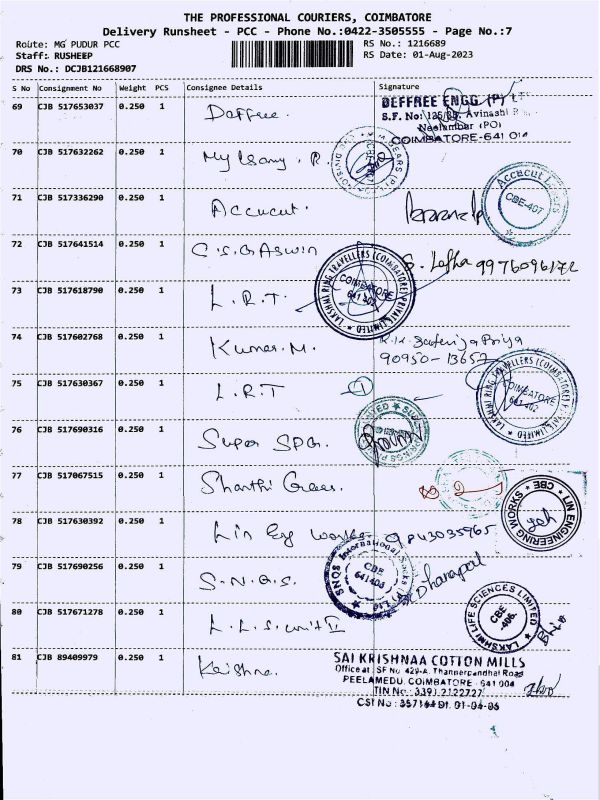 THE PROFESSIONAL COURIERS, COIMBATORE
Delivery Runsheet - PCC - Phone No.:0422-3505555 - Page No.:7
Route: MG PUDUR PCC
RS No.: 1216689
Staff: RUSHEEP
RS Date: 01-Aug-2023
DRS No.: DCJB121668907
S No Consignment No Weight PCS Consignee Details Signature
69 CJB 517653037 0.250 1 Daffree.
DEFFREE ENGG (P) LT
S.F. No: Avinashi
Neelambur (PO)
COIMBATORE-641 014
70 CJB 517632262 0.250 1
71 CJB 517336290 0.250 1 Accucut.
CBE-407
72 CJB 517641514 0.250 1 C.S.G Aswin
9976096172
73 CJB 517618790 0.250 1 L.R.T.
LAKSHMI RING TRAVELLERS (COIMBATORE) PRIVATE LIMITED
COIMBATORE
641 402
74 CJB 517602768 0.250 1 Kumar.M.
90950-13657
75 CJB 517630367 0.250 1 L.R.T 1
COIMBATORE
641 402
76 CJB 517690316 0.250 1 Super Spg.
77 CJB 517067515 0.250 1 Shanthi Gears.
78 CJB 517630392 0.250 1 Lin Eng works 9843035965
LIN ENGINEERING WORKS ★ CBE ★
79 CJB 517690256 0.250 1 S.N.Q.S.
SNQS International Socks Pvt Ltd
CBE
Dhanapal
80 CJB 517671278 0.250 1 L.L.S. unit II
LAKSHMI LIFE SCIENCES LIMITED
CBE
-406.
81 CJB 89409979 0.250 1 Krishna.
SAI KRISHNAA COTTON MILLS
Office at : SF No 429-A, Thanneerpandhal Road
PEELAMEDU, COIMBATORE - 641 004
TIN No : 33912122727
CST No : 357164 Dt. 01-04-86